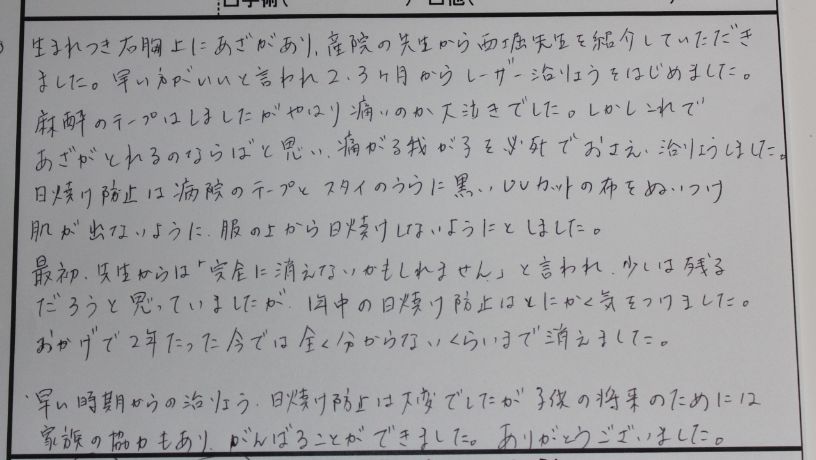 生まれつき右胸上にあざがあり、産院の先生から西堀先生を紹介していただき
ました。早い方がいいと言われ2、3ヶ月からレーザー治りょうをはじめました。
麻酔のテープはしましたがやはり痛いのか大泣きでした。しかしこれで
あざがとれるのならばと思い、痛がる我が子を必死でおさえ、治りょうしました。
日焼け防止は病院のテープとスタイのうらに黒いUVカットの布をぬいつけ
肌が出ないように、服の上から日焼けしないようにとしました。
最初、先生からは「完全に消えないかもしれません」と言われ、少しは残る
だろうと思っていましたが、1年中の日焼け防止はとにかく気をつけました。
おかげで2年たった今では全く分からないくらいまで消えました。
早い時期からの治りょう、日焼け防止は大変でしたが子供の将来のためには
家族の協力もあり、がんばることができました。ありがとうございました。